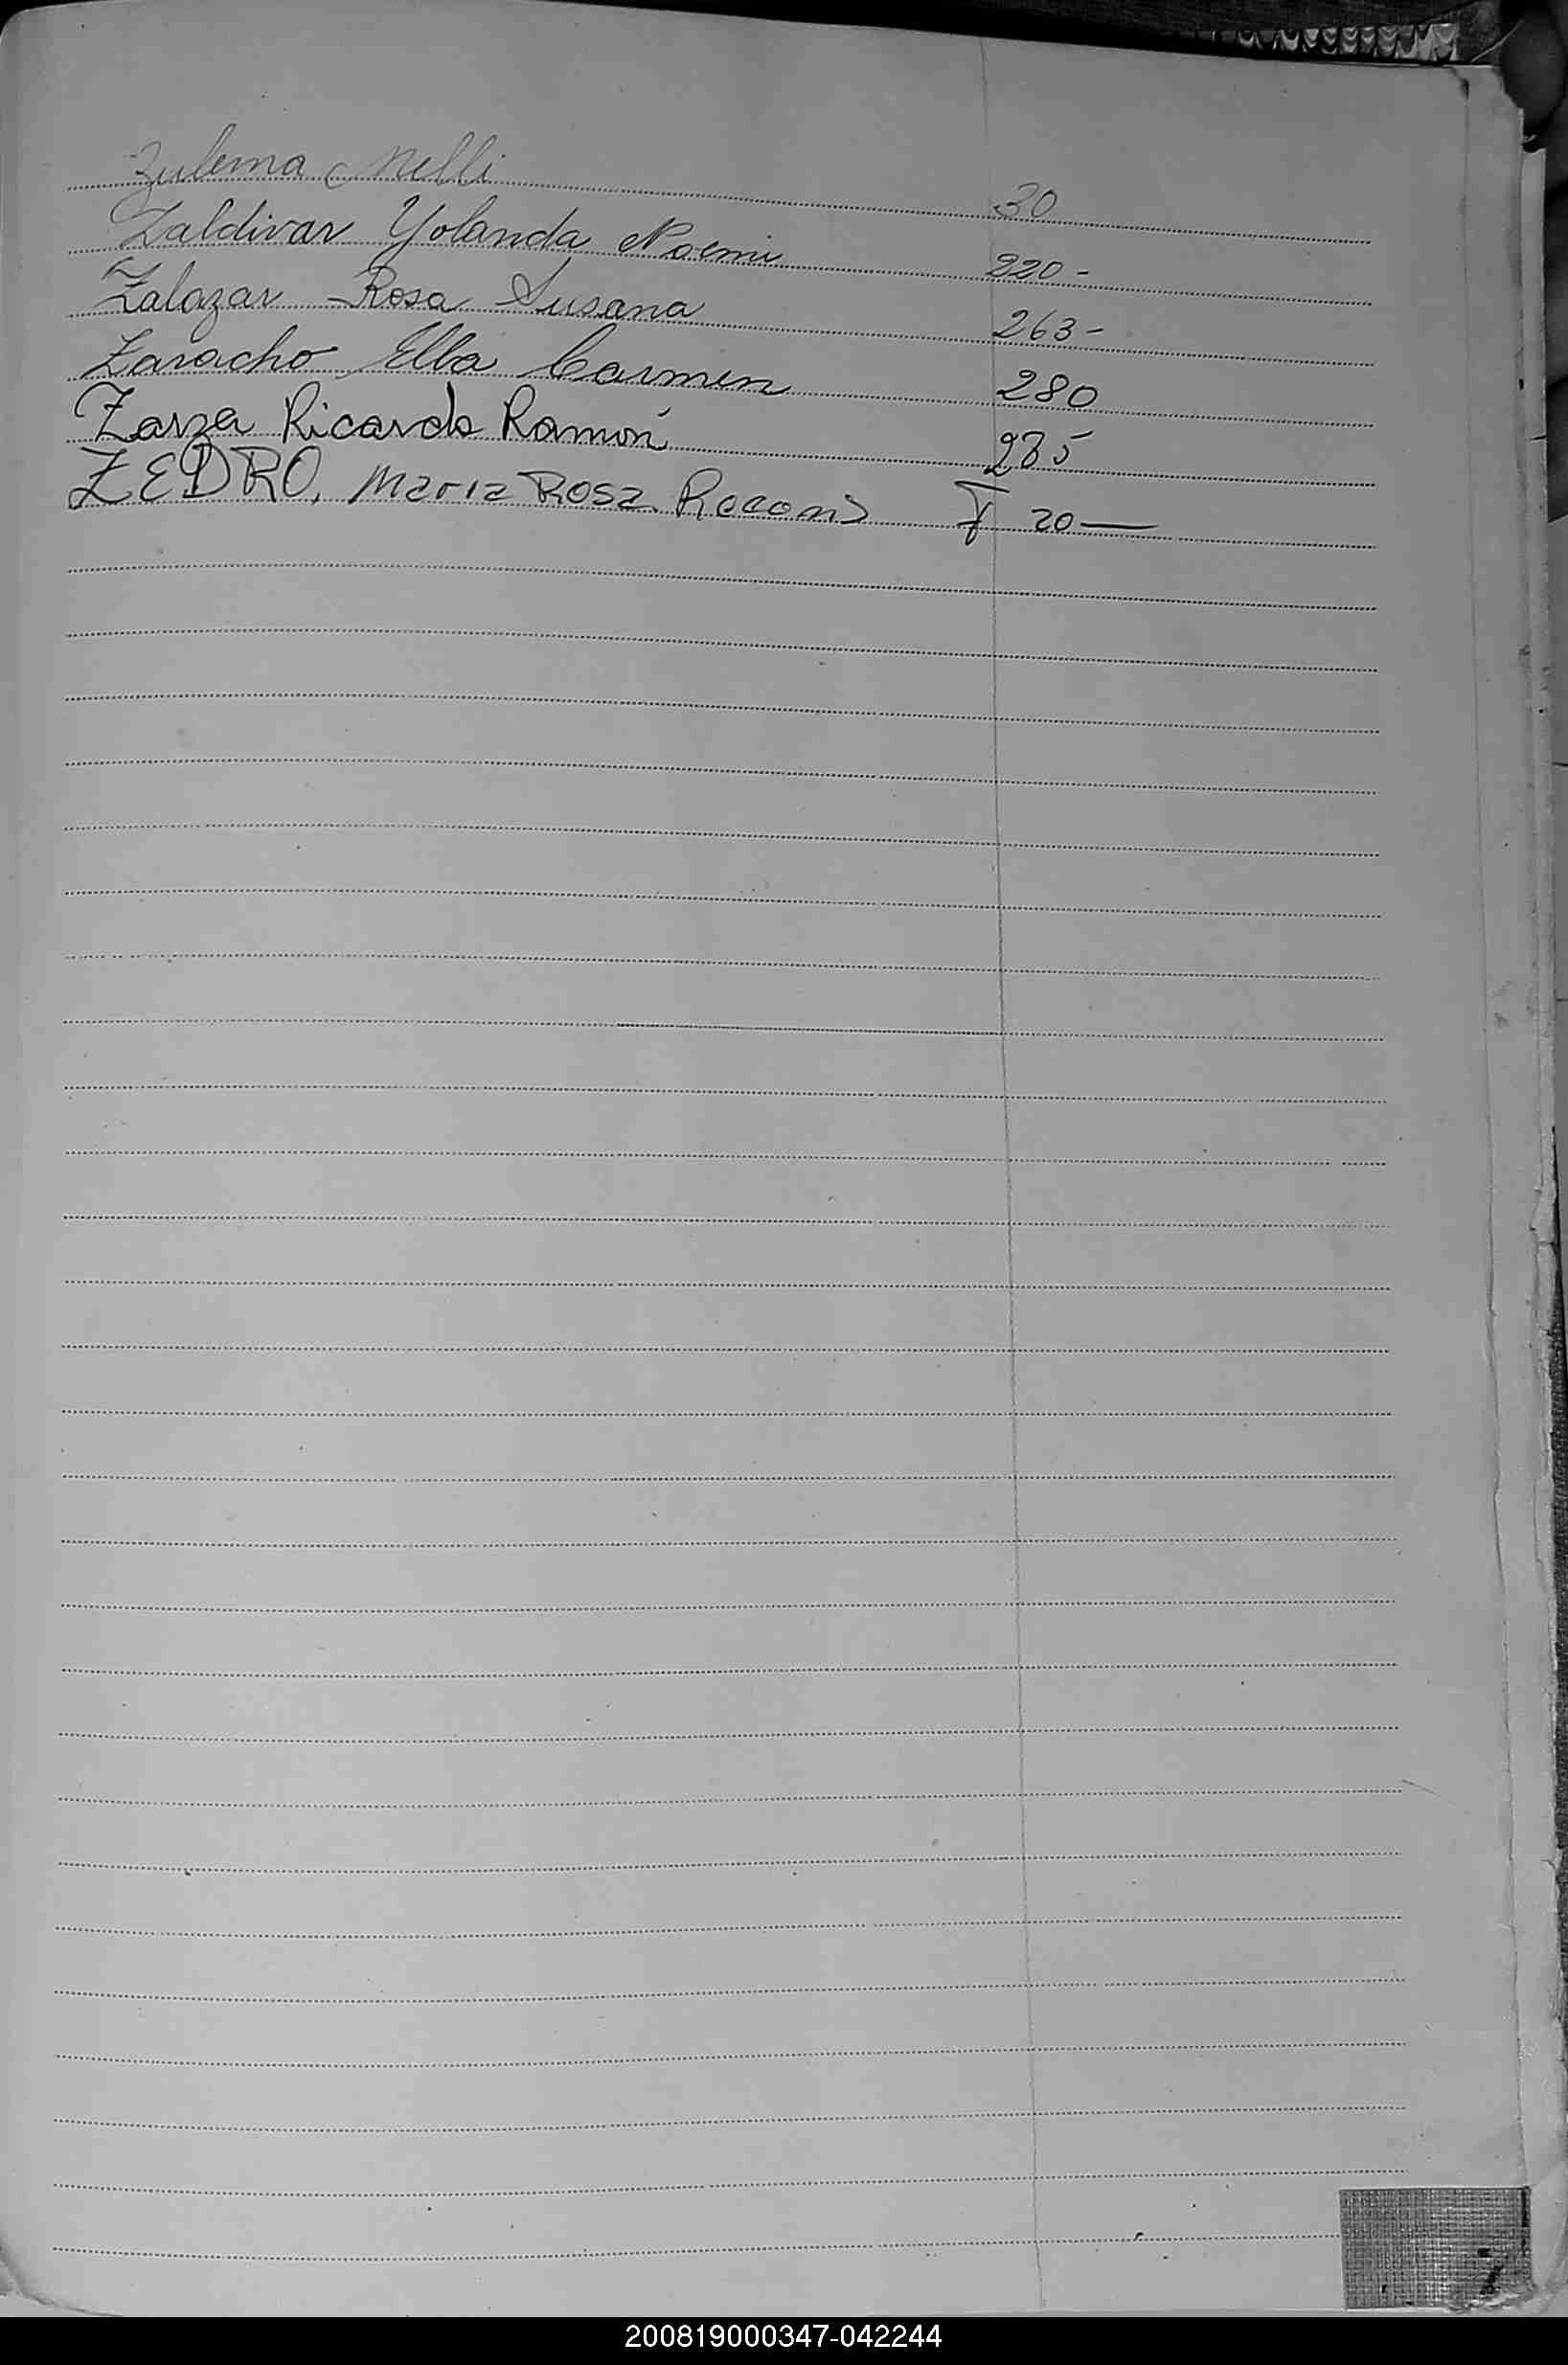 Zulema Nelli 30
Zaldivar Yolanda Noemi 220-
Zalazar Rosa Susana 263-
Zaracho Elba Carmen 280
Zarza Ricardo Ramón 285
ZEDRO, Maria Rosa F 20—
200819000347-042244